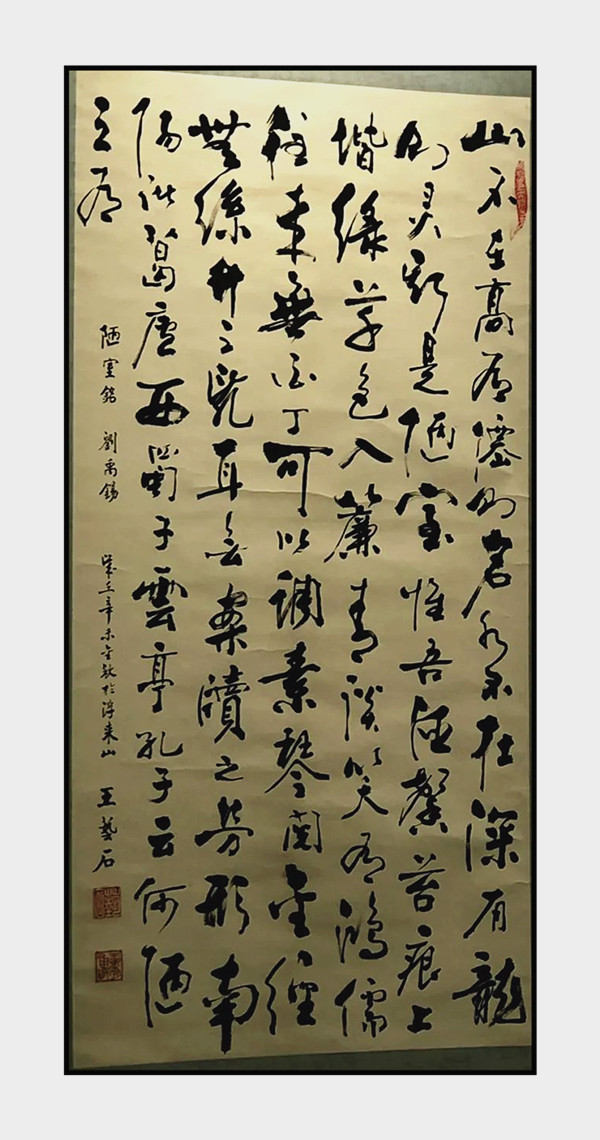 山不在高有僊则名水不在深有龍
则灵斯是陋室惟吾德馨苔痕上
堦绿草色入簾青談笑有鴻儒
往来無白丁可以調素琴閲金經
無絲竹之乱耳無案牘之劳形南
陽诸葛廬西蜀子雲亭孔子云何陋
之有
陋室銘 劉禹錫 歲在辛未金秋於浮来山 王藝石